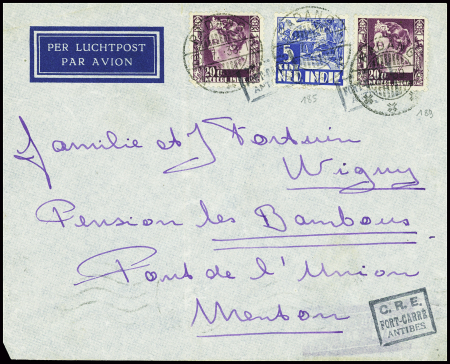 PER LUCHTPOST
PAR AVION
20 CT
5
CENT
NED. INDIE
20 CT
185
189
Familie et J Fortuin
Wigny
Pension les Bambous
Pont de l'Union
Menton
C. R. E.
FORT-CARRÉ
ANTIBES